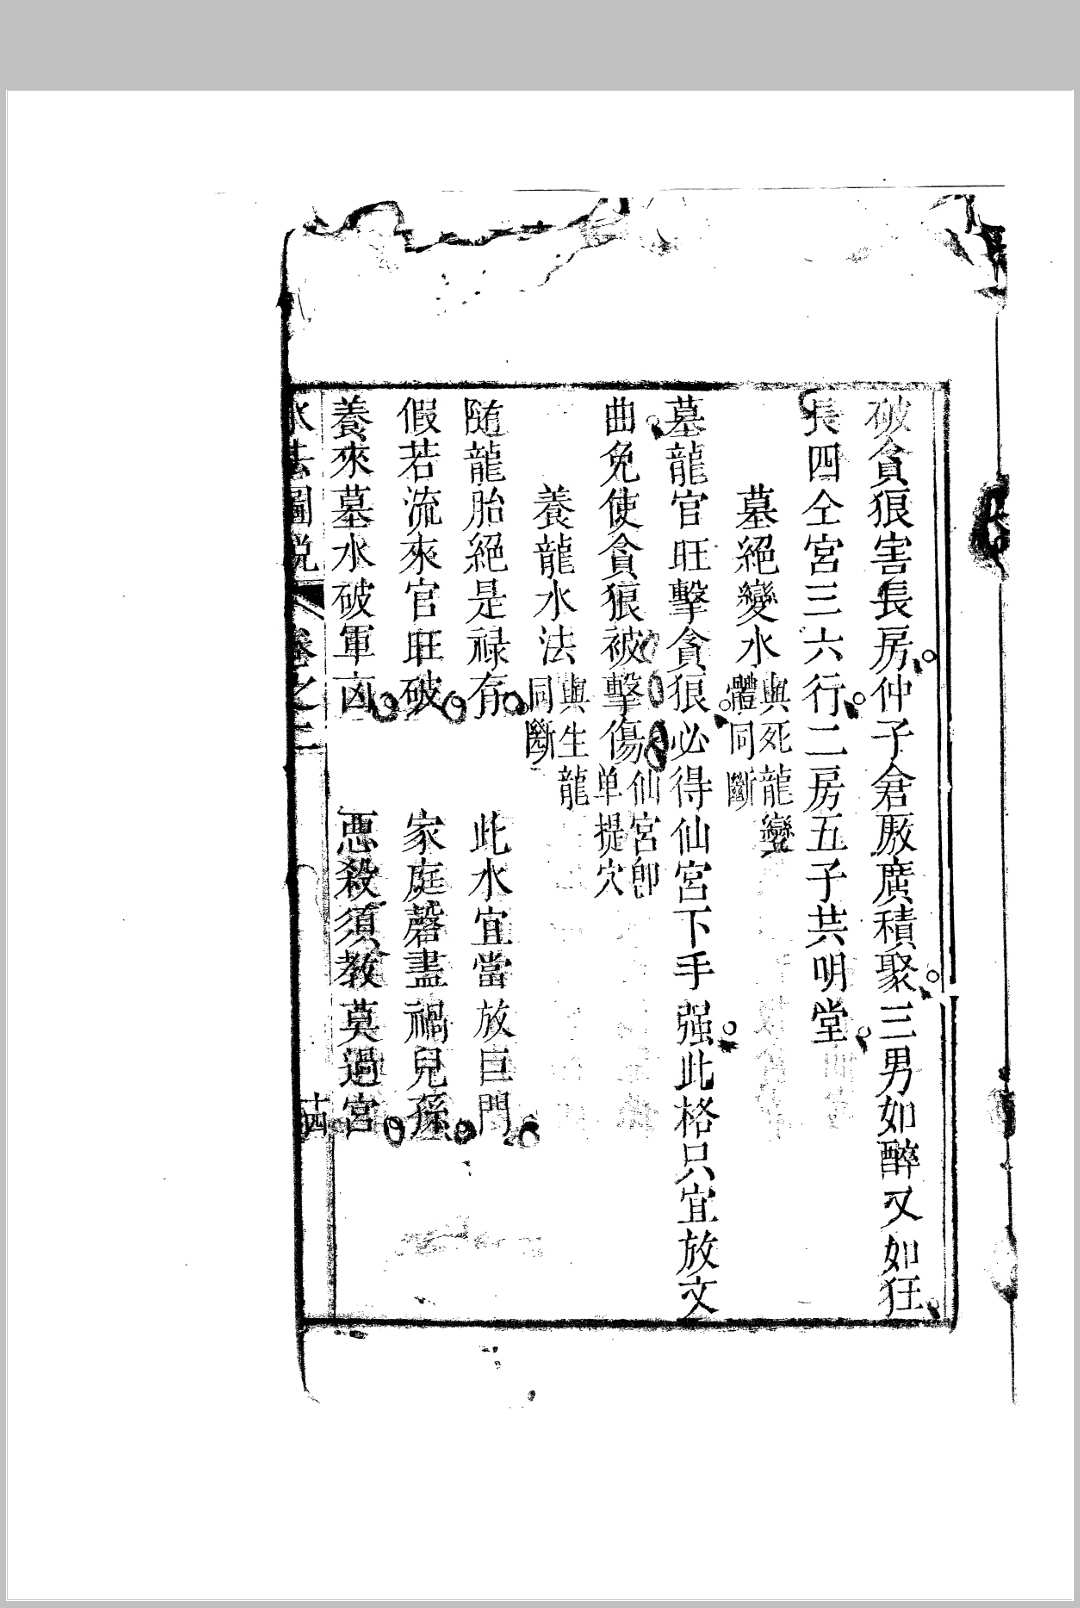 破貪狼害長房仲子倉厫廣積聚三男如醉又如狂
長四仝宮三六行二房五子共明堂
墓絕變水與死龍變體同斷
墓龍官旺擊貪狼必得仙宮下手强此格只宜放文
曲免使貪狼被擊傷仙宮卽单提穴
養龍水法與生龍同斷
随龍胎絕是禄存 此水宜當放巨門
假若流來官旺破 家庭罄盡禍兒孫
養來墓水破軍凶 惡殺須教莫過宮
水法圖說 卷之二 十四